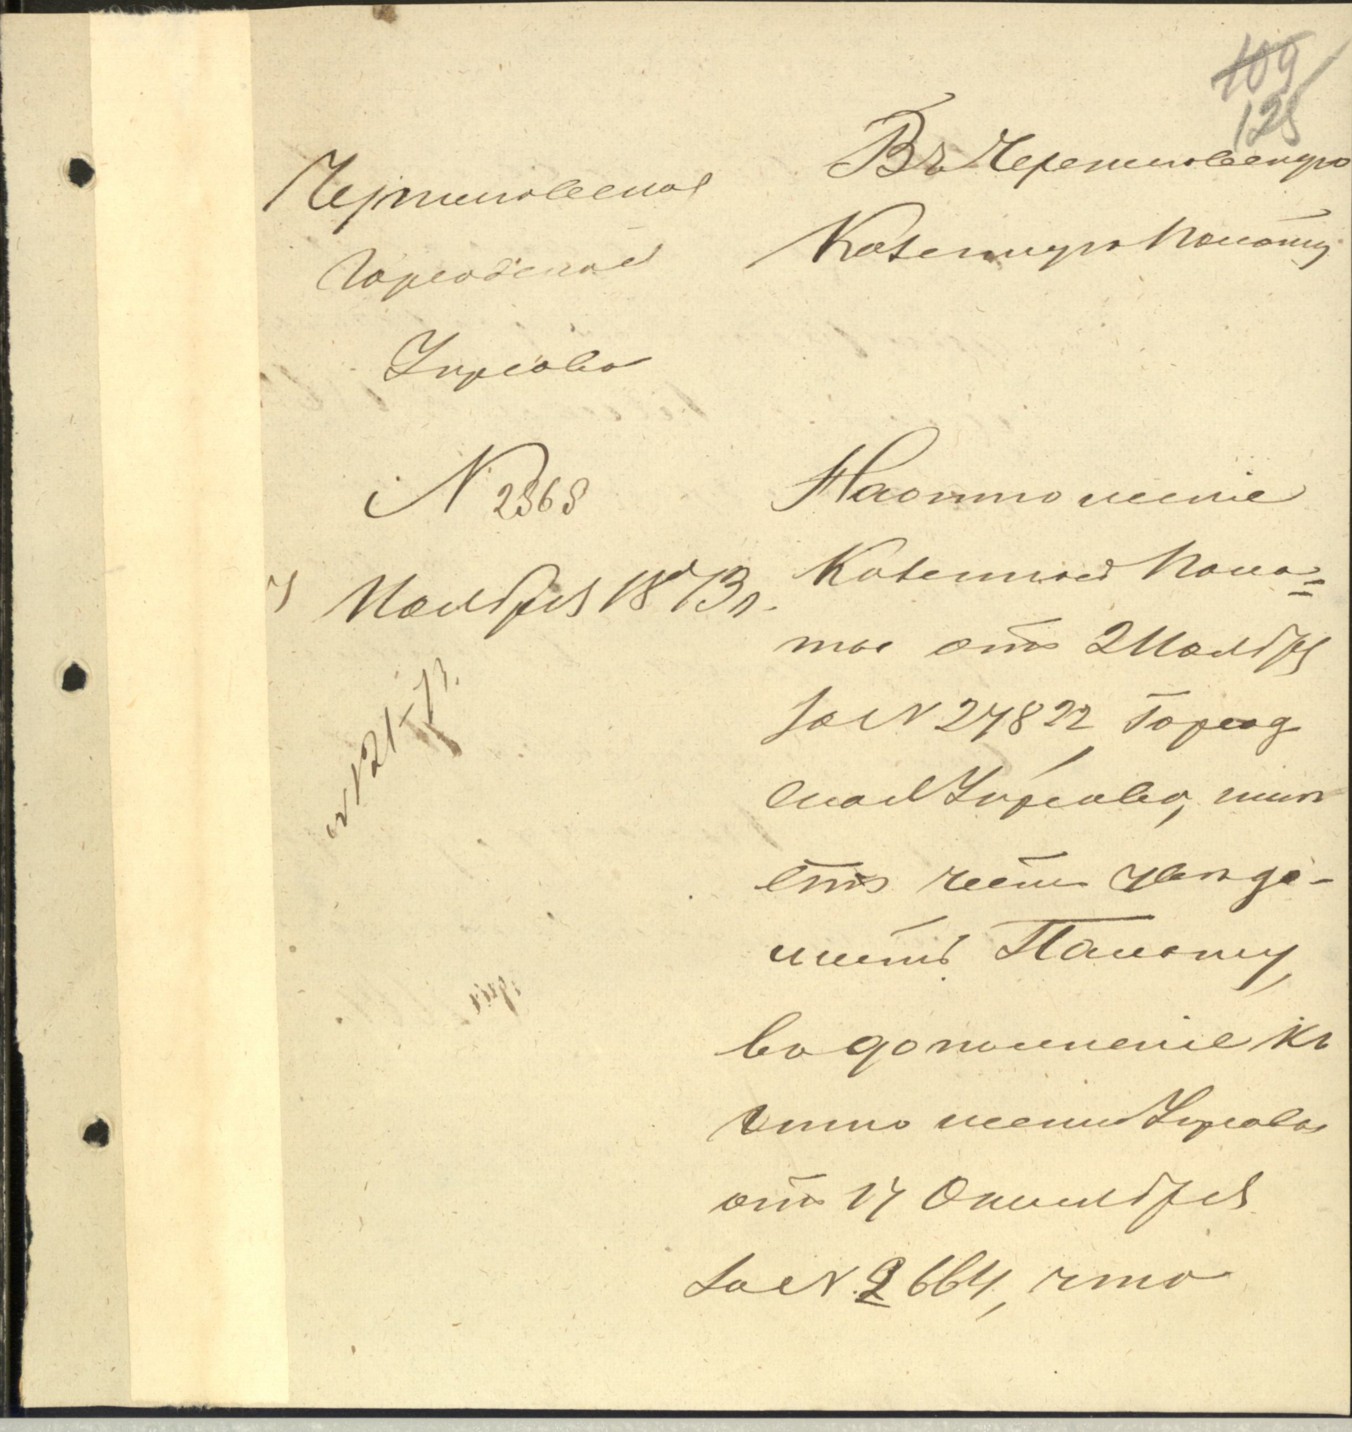 109
125
Черниговская
Городская
Управа
N 2868
Ноября 1873 г.
N 121-73.
Въ Черниговскую
Казенную Палату
На отношеніе
Казенной Пала=
ты отъ 2 Ноября
за N 27822 Город
ская Управа, имѣ
етъ честь увѣдо-
мить Палату,
въ дополненіе къ
отношенію Управы
отъ 17 Октября
за N 2664, что